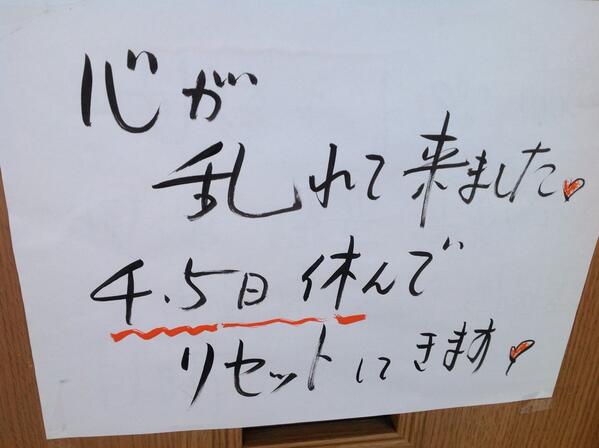 心が
乱れて来ました
4.5日休んで
リセットしてきます